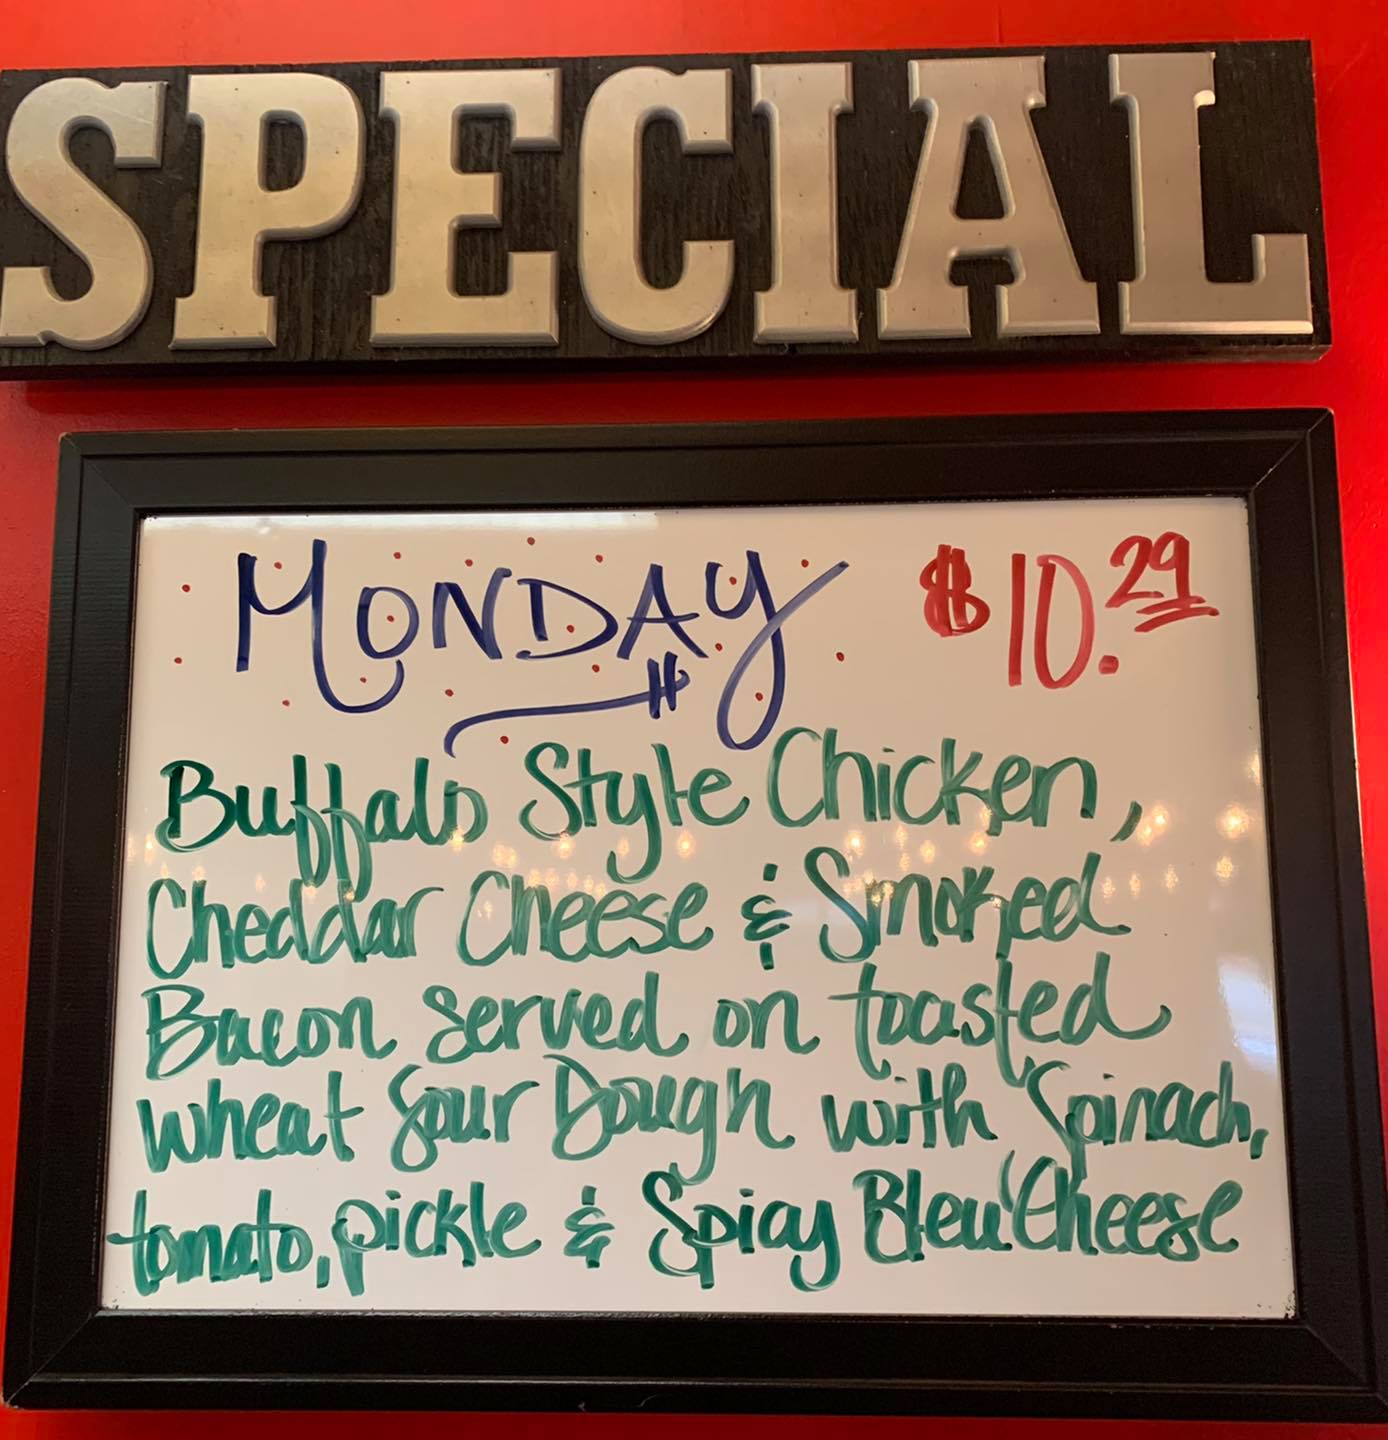 SPECIAL
MONDAY $10.29
Buffalo Style Chicken,
Cheddar Cheese & Smoked
Bacon served on toasted
wheat Sour Dough with Spinach,
tomato, pickle & Spicy Bleu Cheese